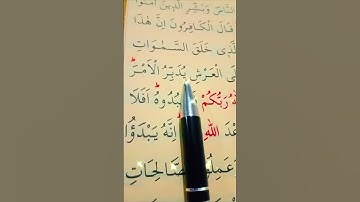 النَّاسَ وَبَشِّرِ الَّذِينَ آمَنُوا
قَالَ الْكَافِرُونَ إِنَّ هٰذَا
الَّذِى خَلَقَ السَّمٰوَاتِ
الْعَرْشِ يُدَبِّرُ الْاَمْرَ
رَبُّكُمْ اَفَلَا
اللّٰهِ اِنَّهُ يَبْدَؤُا
وَعَمِلُوا الصَّالِحَاتِ